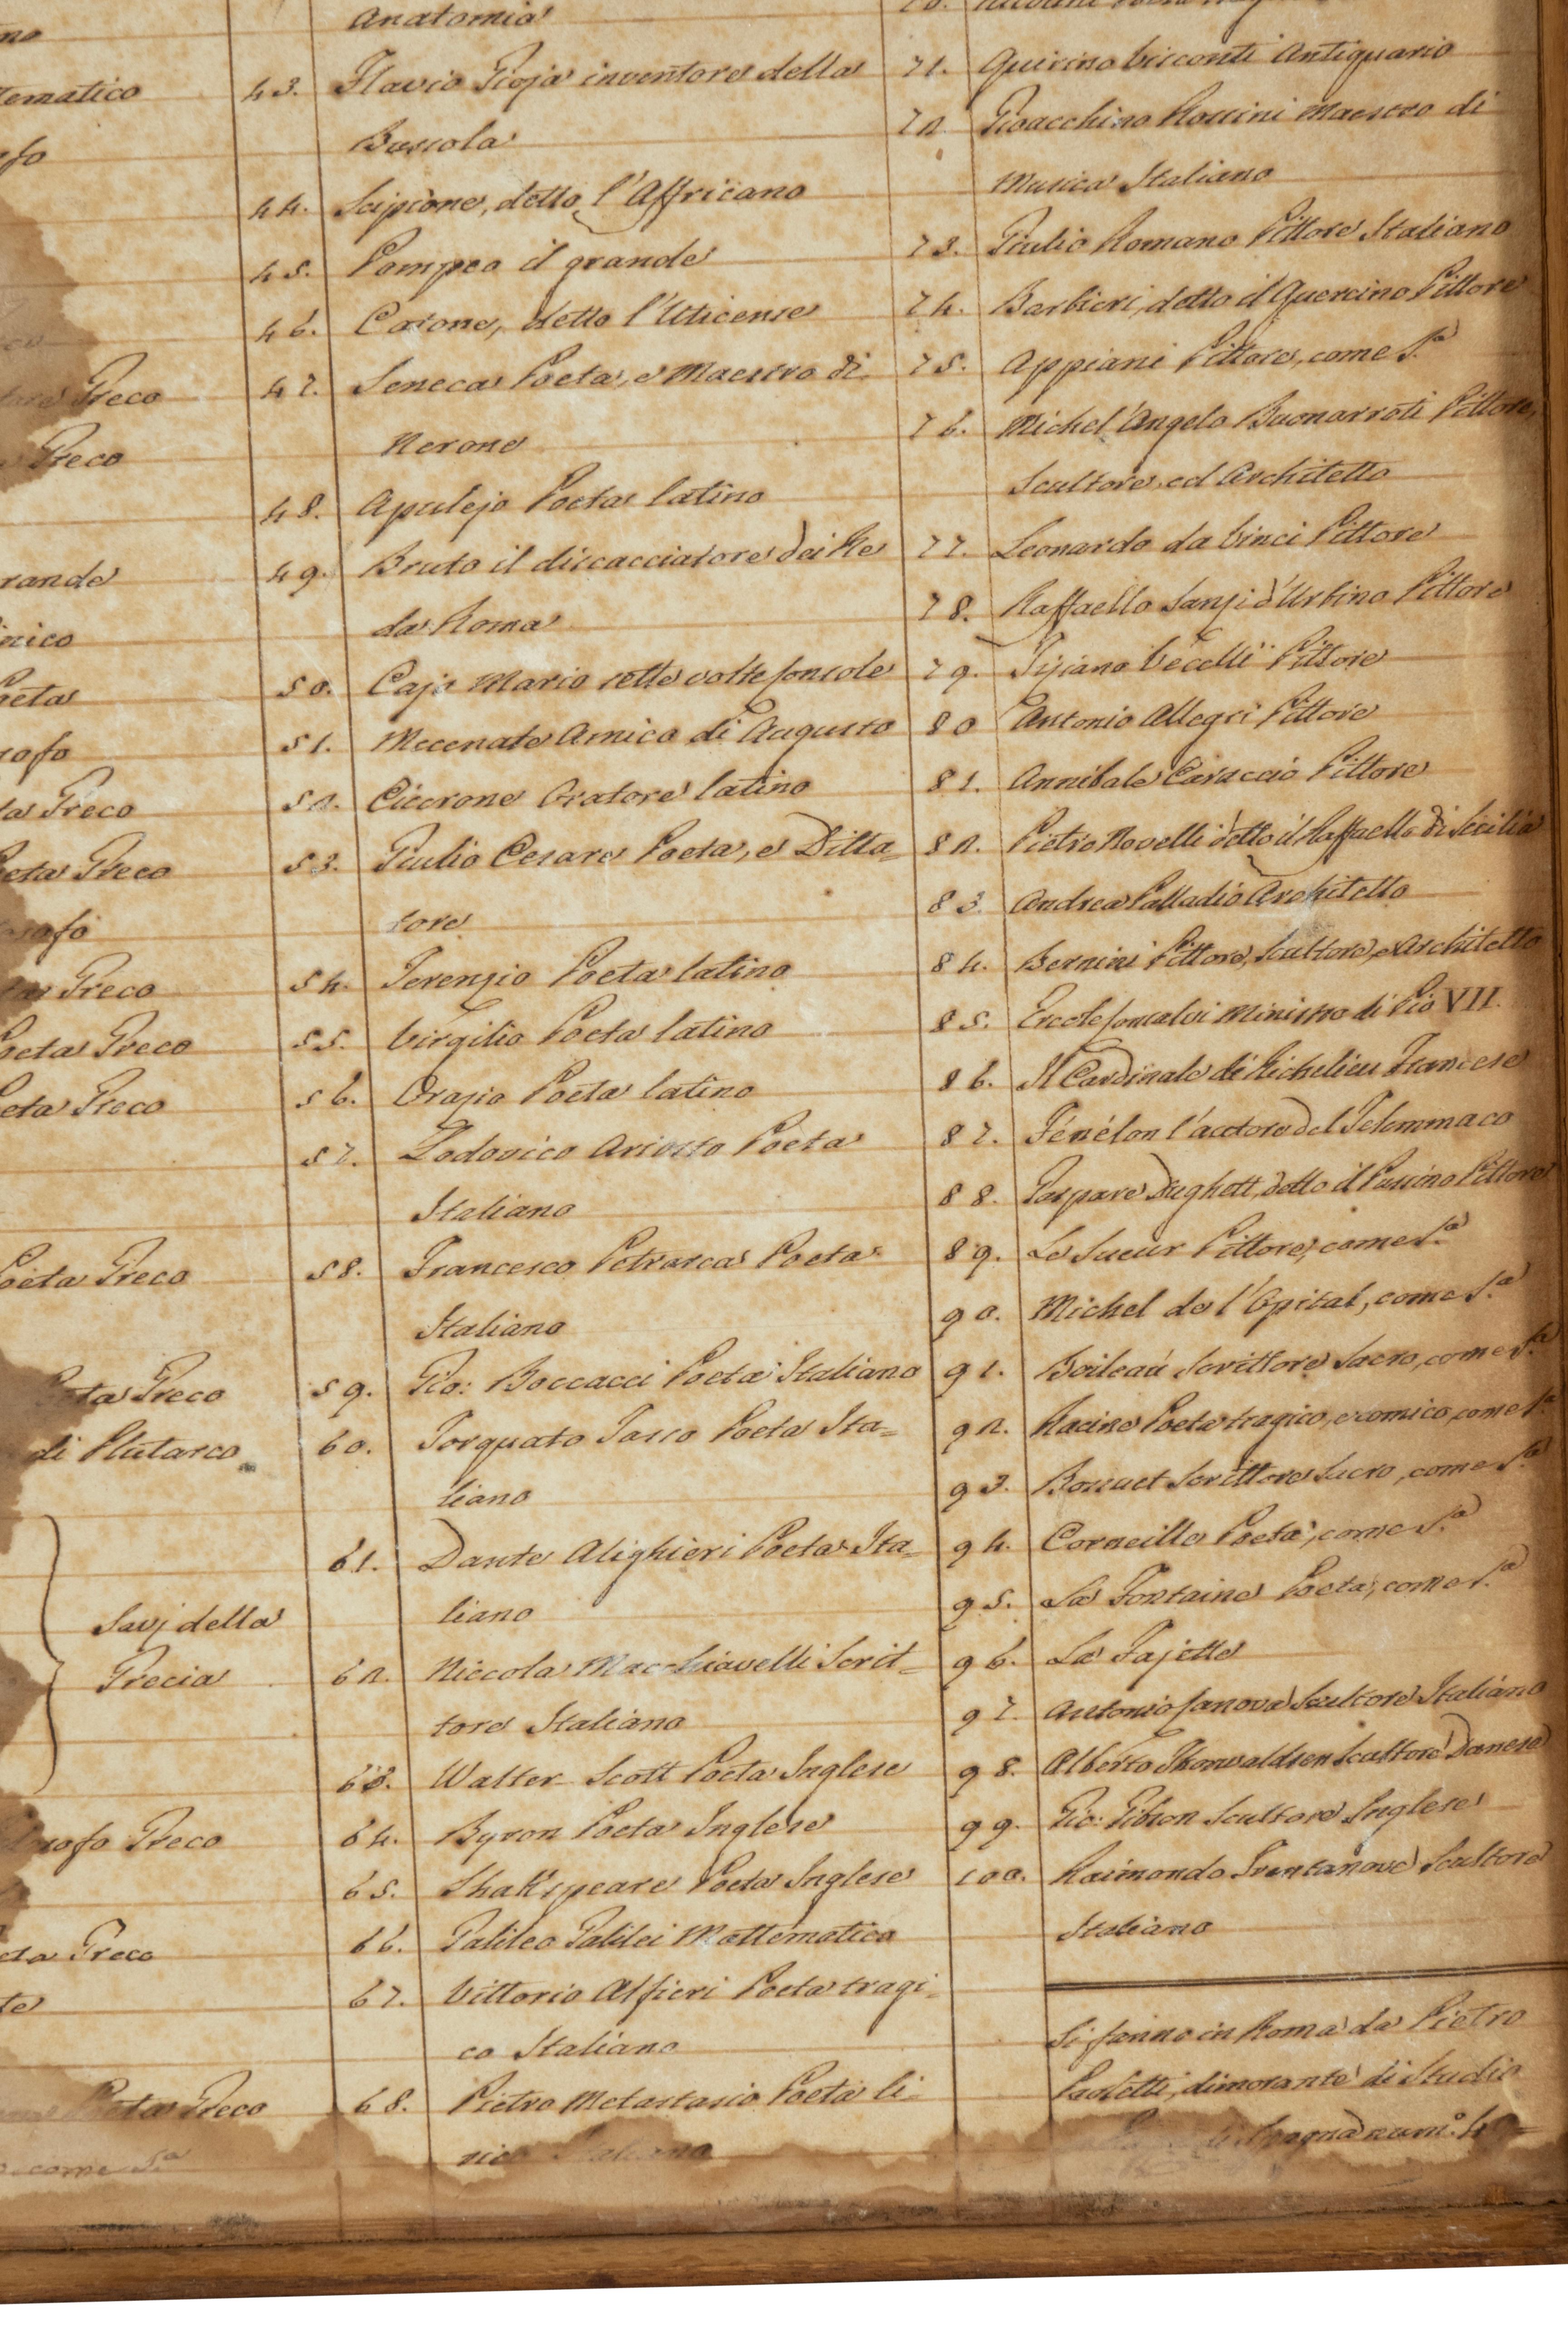 no
tematico
fo
Greco
Greco
rande
inico
Poeta
sofo
ta Greco
Poeta Greco
Greco
Poeta Greco
Poeta Greco
Poeta Greco
Poeta Greco
di Plutarco
Savj della
Grecia
sofo Greco
Greco
te
Poeta Greco
come S.ª
Anatomia
43. Flavio Gioja inventore della
Bussola
44. Scipione, detto l'Affricano
45. Pompeo il grande
46. Catone, detto l'Uticense
47. Seneca Poeta, e Maestro di
Nerone
48. Apulejo Poeta latino
49. Bruto il discacciatore dei Re
da Roma
50. Cajo Mario sette volte Console
51. Mecenate Amico di Augusto
52. Cicerone Oratore latino
53. Giulio Cesare Poeta, e Ditta=
tore
54. Terenzio Poeta latino
55. Virgilio Poeta latino
56. Orazio Poeta latino
57. Lodovico Ariosto Poeta
Italiano
58. Francesco Petrarca Poeta
Italiano
59. Gio: Boccacci Poeta Italiano
60. Torquato Tasso Poeta Ita=
liano
61. Dante Alighieri Poeta Ita=
liano
62. Niccola Macchiavelli Scrit=
tore Italiano
63. Walter Scott Poeta Inglese
64. Byron Poeta Inglese
65. Shakspeare Poeta Inglese
66. Galileo Galilei Mattematico
67. Vittorio Alfieri Poeta tragi=
co Italiano
68. Pietro Metastasio Poeta li=
rico Italiano
71. Quirino Visconti Antiquario
72 Gioacchino Rossini Maestro di
Musica Italiano
73. Giulio Romano Pittore Italiano
74. Barbieri, detto il Guercino Pittore
75. Appiani Pittore, come S.ª
76. Michel'Angelo Buonarroti Pittore,
Scultore, ed Architetto
77. Leonardo da Vinci Pittore
78. Raffaello Sanzi d'Urbino Pittore
79. Tiziano Vecelli Pittore
80 Antonio Allegri Pittore
81. Annibale Caraccio Pittore
82. Pietro Novelli detto il Raffaello di Sicilia
83. Andrea Palladio Architetto
84. Bernini Pittore, Scultore, e Architetto
85. Ercole Consalvi Ministro di Pio VII.
86. Il Cardinale di Richelieu Francese
87. Fénélon l'autore del Telemmaco
88. Gaspare Dughett, detto il Pussino Pittore
89. Le Sueur Pittore, come S.ª
90. Michel de l'Opital, come S.ª
91. Boileau Scrittore Sacro, come S.ª
92. Racine Poeta tragico, e comico, come S.ª
93. Bossuet Scrittore Sacro, come S.ª
94. Corneille Poeta, come S.ª
95. La Fontaine Poeta, come S.ª
96. La Fajette
97. Antonio Canova Scultore Italiano
98. Alberto Thorwaldsen Scultore Danese
99. Gio: Gibson Scultore Inglese
100. Raimondo Trentanove Scultore
Italiano
Si fanno in Roma da Pietro
Paoletti, dimorante di Studio
Spagna num.º